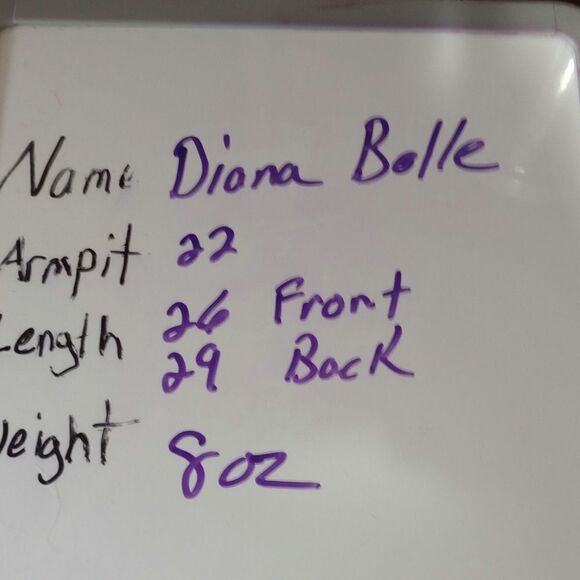 Name Diana Belle
Armpit 22
Length 26 Front
29 Back
Weight 8oz